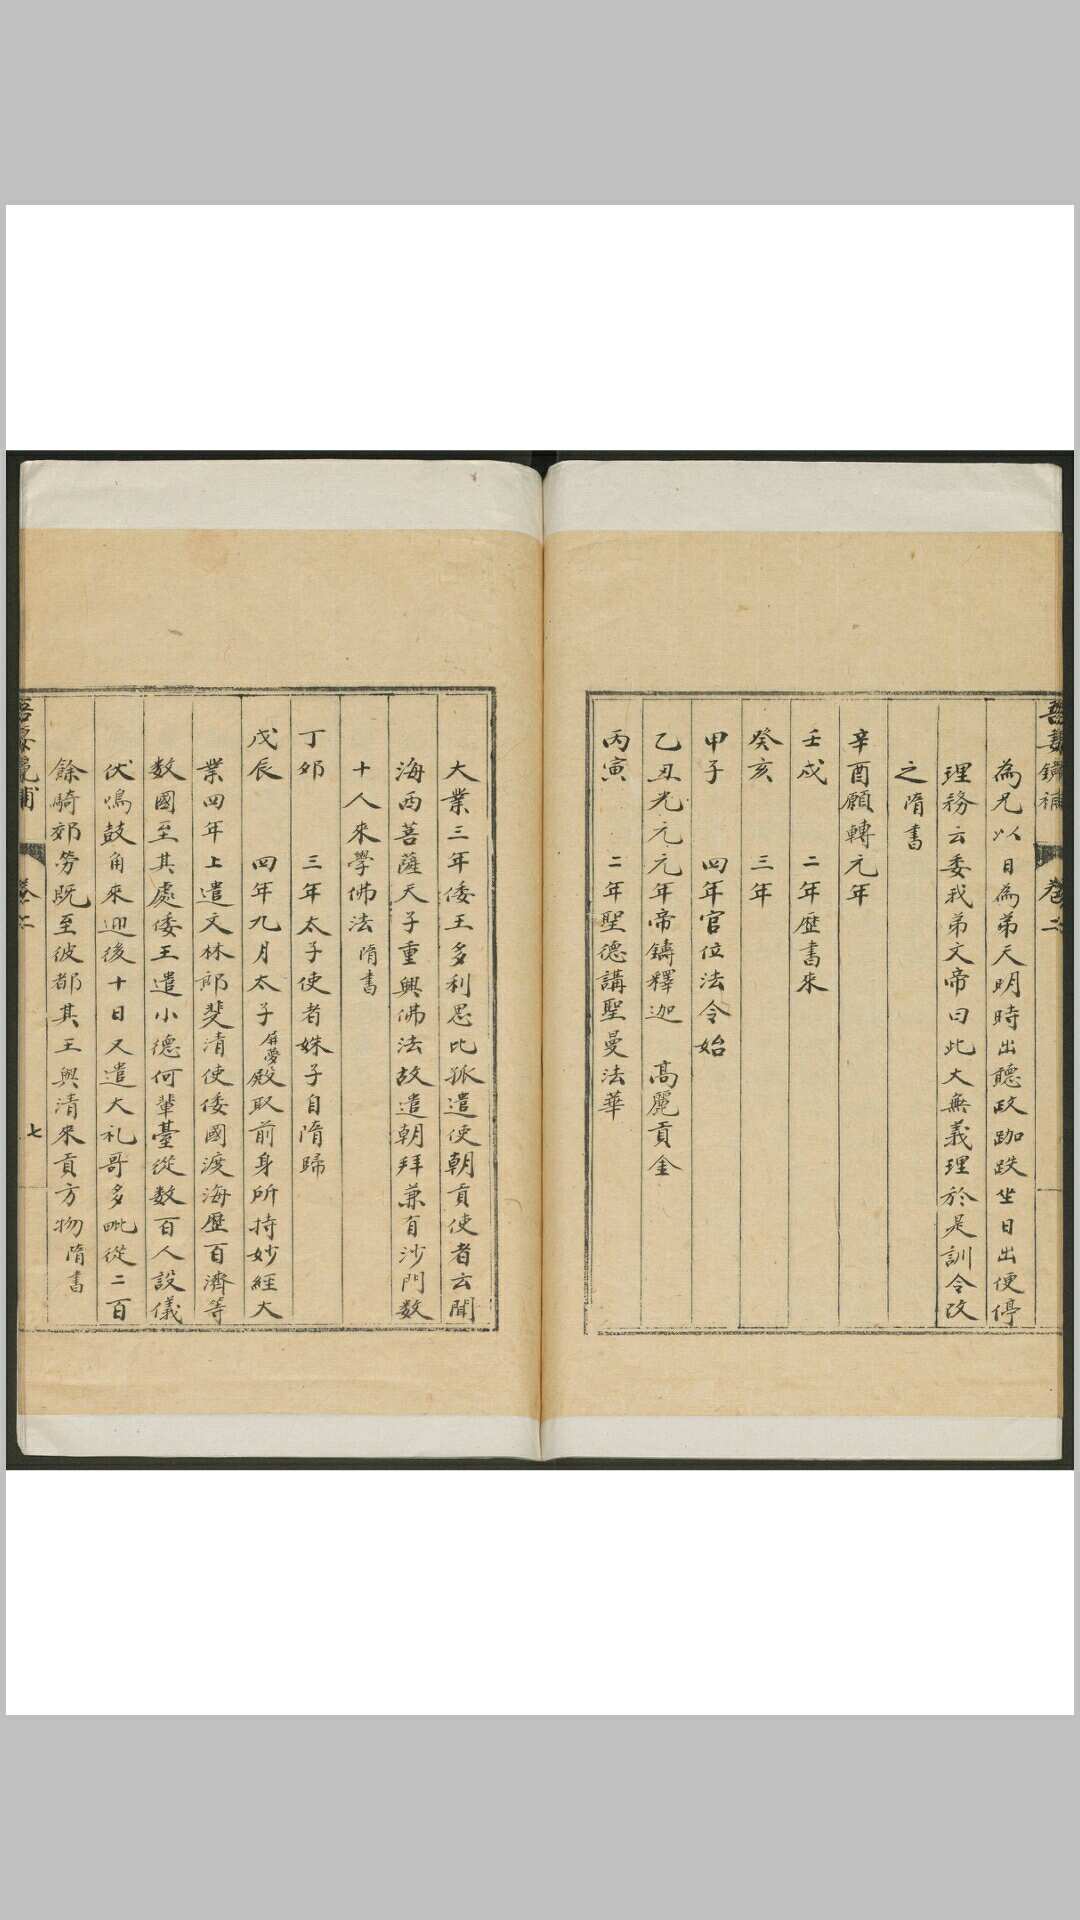 為兄以日為弟天明時出聽政跏趺坐日出便停
理務云委我弟文帝曰此大無義理於是訓令改
之 隋書
辛酉願轉元年
壬戌 二年歷書來
癸亥 三年
甲子 四年官位法令始
乙丑光元元年帝鑄釋迦 高麗貢金
丙寅 二年聖德講聖曼法華
大業三年倭王多利思比孤遣使朝貢使者云聞
海西菩薩天子重興佛法故遣朝拜兼有沙門数
十人來學佛法 隋書
丁卯 三年太子使者妹子自隋歸
戊辰 四年九月太子屏夢殿取前身所持妙經大
業四年上遣文林郎斐清使倭國渡海歷百濟等
数國至其處倭王遣小德何輩臺從数百人設儀
仗鳴鼓角來迎後十日又遣大礼哥多毗從二百
餘騎郊勞既至彼都其王與清來貢方物 隋書
七